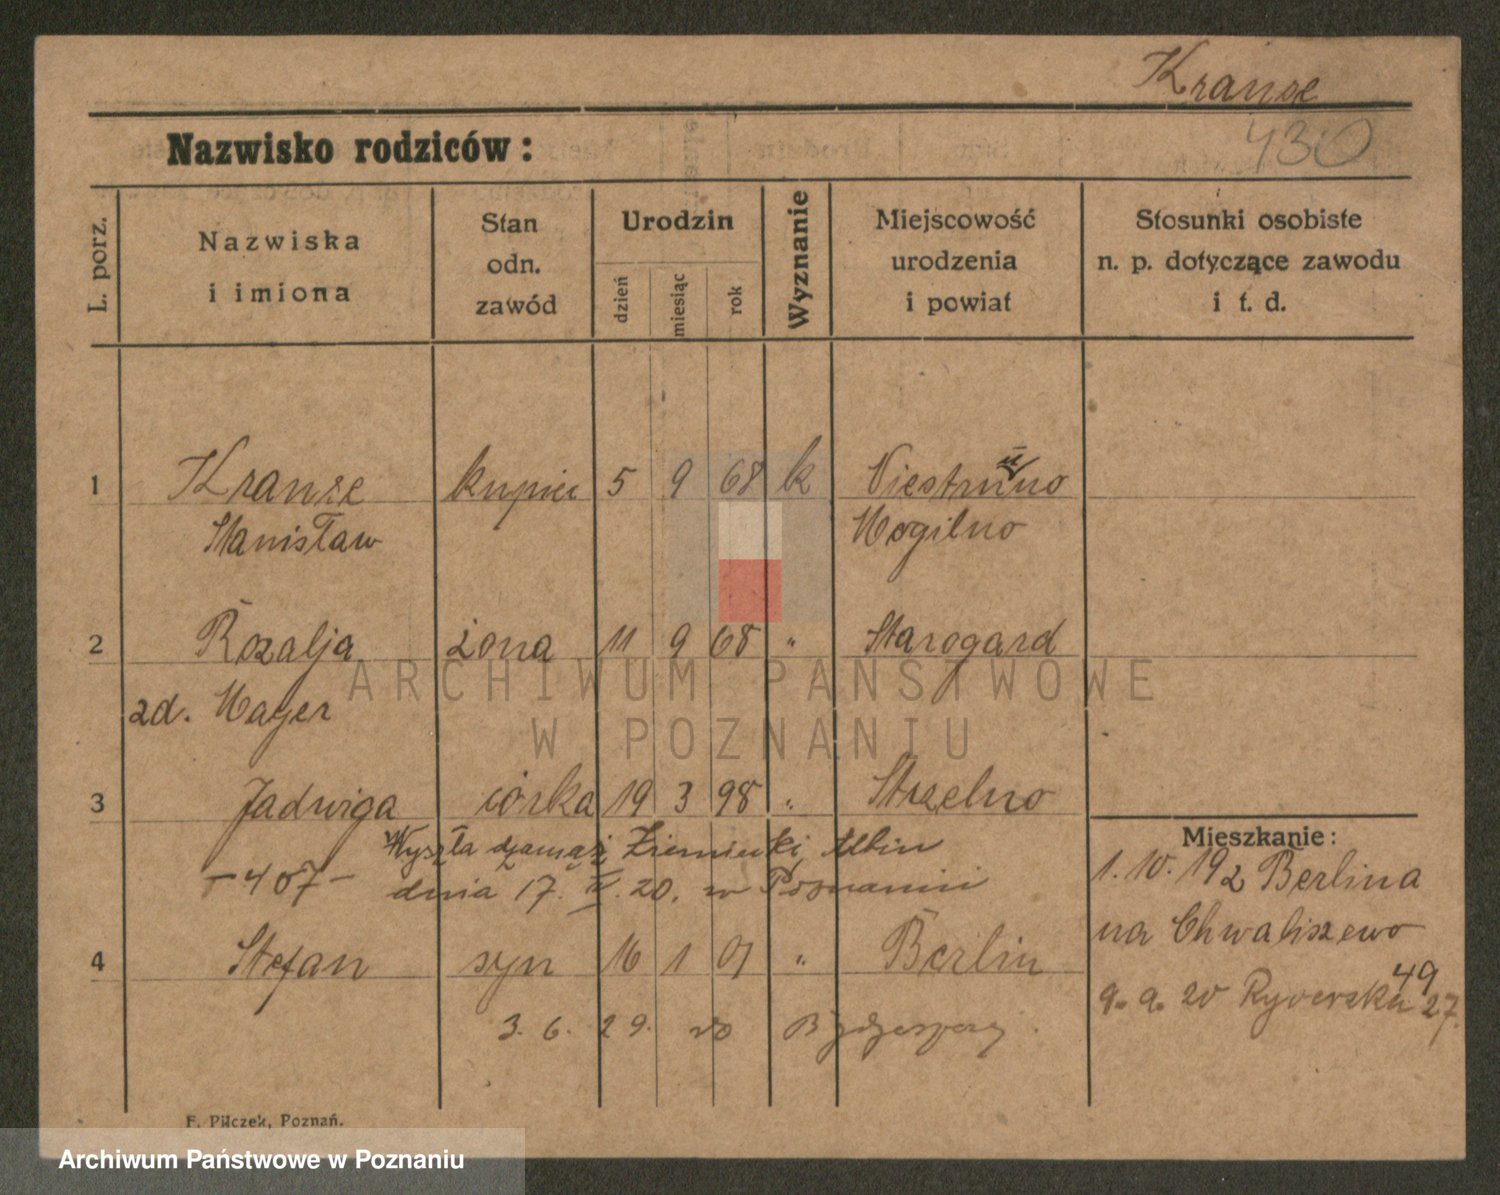 Krause
430
Nazwisko rodziców:
L. porz.
Nazwiska i imiona
Stan odn. zawód
Urodzin
dzień
miesiąc
rok
Wyznanie
Miejscowość urodzenia i powiat
Stosunki osobiste n. p. dotyczące zawodu i t. d.
1 Krause kupiec 5 9 68 k
Stanisław Mogilno
2 Rozalja żona 11 9 68 " Starogard
zd. Mayer
ARCHIWUM PAŃSTWOWE
W POZNANIU
3 Jadwiga córka 19 3 98 " Strzelno
Wyszła zamąż Ziemnicki Albin
-407- dnia 17. 20. w Poznaniu
4 Stefan syn 16 1 01 " Berlin
3. 6. 29. do Bydgoszczy.
Mieszkanie:
1. 10. 192 Berlina
na Chwaliszewo
49
9. 9. 20 27.
F. Pilczek, Poznań.
Archiwum Państwowe w Poznaniu